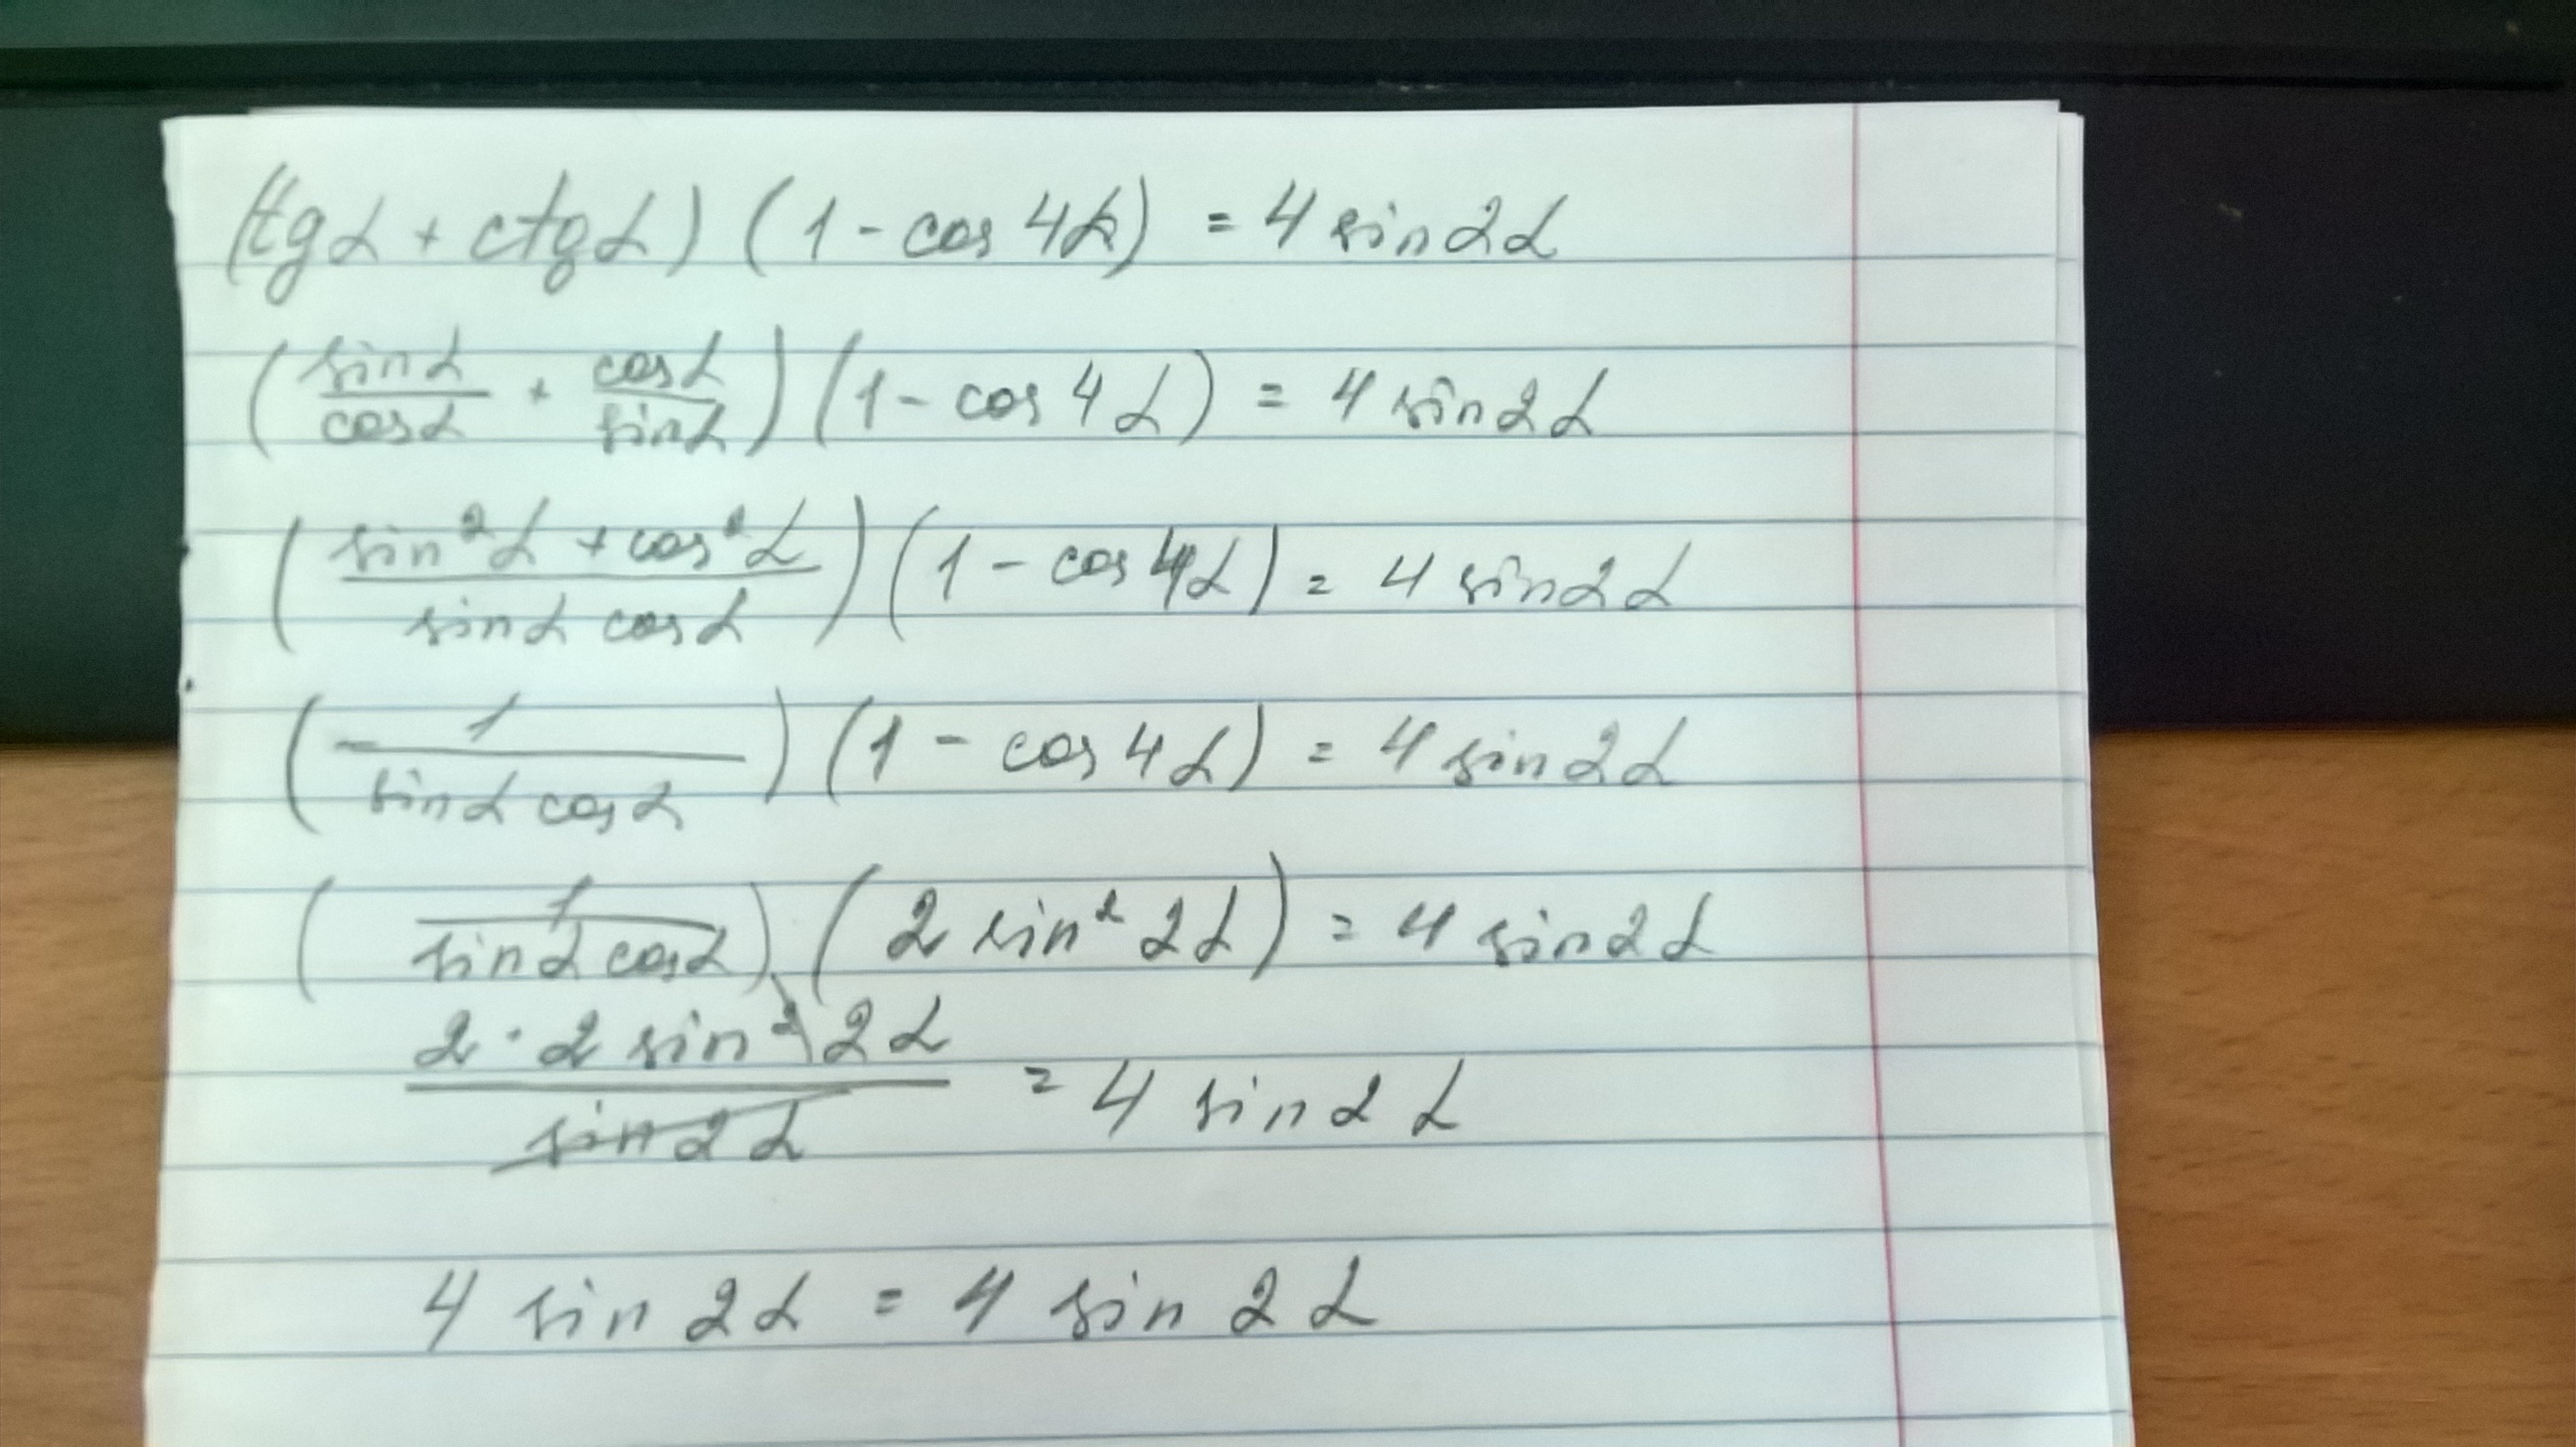 (tgα + ctgα) (1 - cos 4α) = 4 sin 2α
(sinα/cosα + cosα/sinα) (1 - cos 4α) = 4 sin 2α
(sin²α + cos²α / sinα cosα) (1 - cos 4α) = 4 sin 2α
(1 / sinα cosα) (1 - cos 4α) = 4 sin 2α
(1 / sinα cosα) (2 sin² 2α) = 4 sin 2α
2 · 2 sin² 2α / sin 2α = 4 sin 2α
4 sin 2α = 4 sin 2α